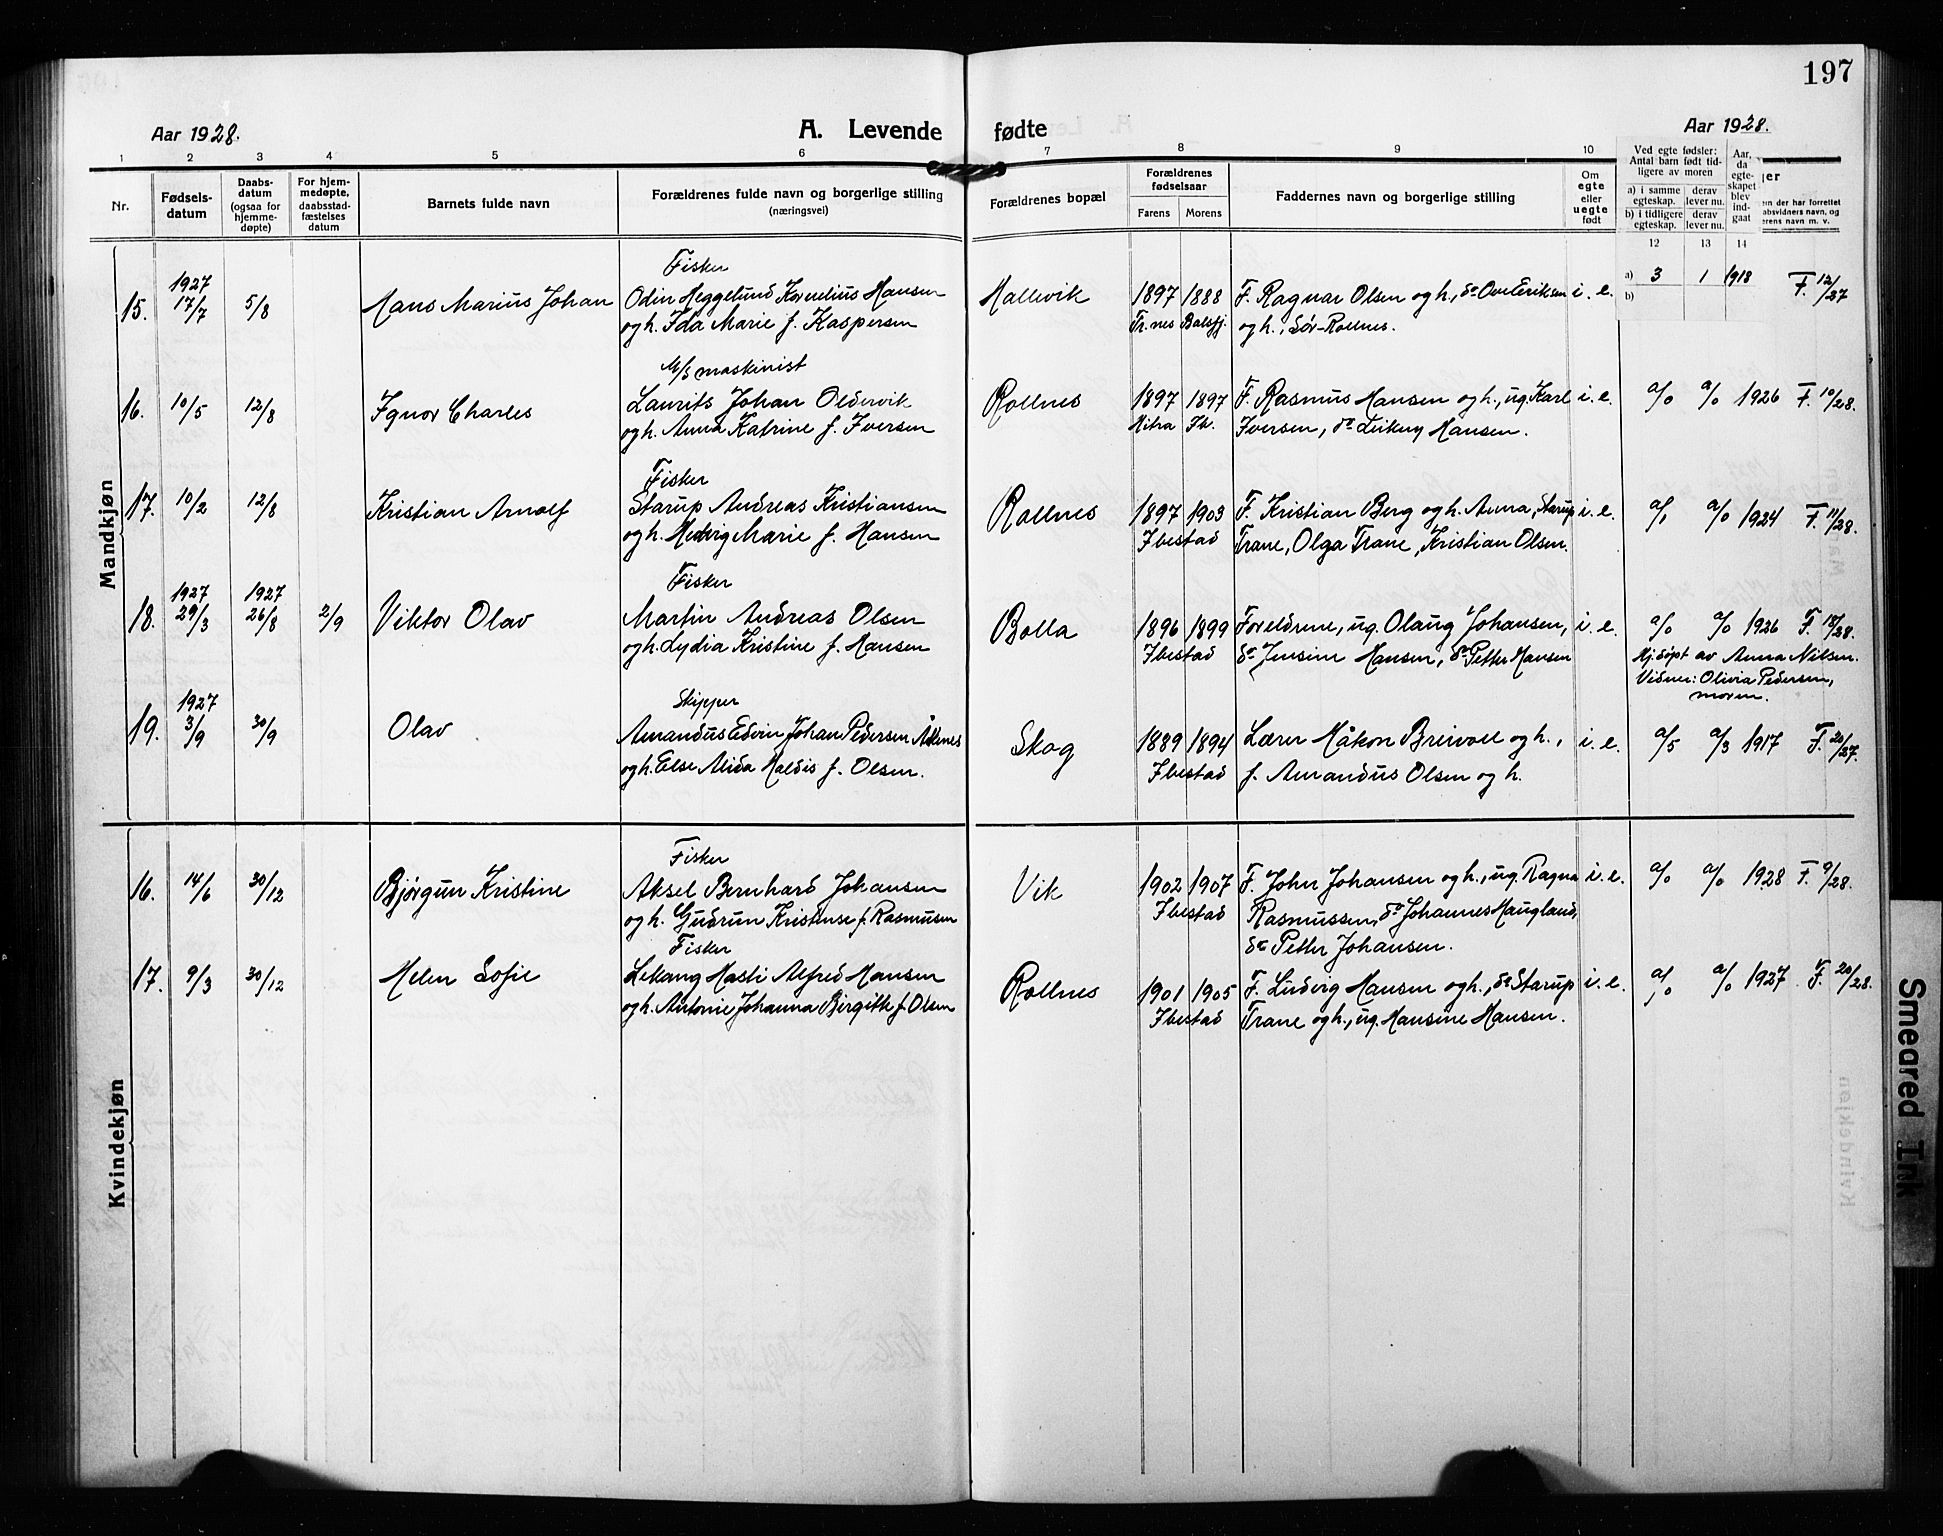 197
Aar 1928.
A. Levende fødte
Aar 1928.
1 2 3 4 5 6 7 8 9 10
Nr.
Fødsels-
datum
Daabs-
datum
(ogsaa for
hjemme-
døpte)
For hjem-
medøpte,
daabsstad-
fæstelses
datum
Barnets fulde navn
Forældrenes fulde navn og borgerlige stilling
(næringsvei)
Forældrenes bopæl
Forældrenes
fødselsaar
Farens Morens
Faddernes navn og borgerlige stilling
Om
egte
eller
uegte
født
Ved egte fødsler:
Antal barn født tid-
ligere av moren
a) i samme
egteskap.
derav
lever nu.
b) i tidligere
egteskap.
derav
lever nu.
Aar,
da
egte-
skapet
blev
ind-
gaat
12 13 14
Mandkjøn
Fisker
15. 1927 17/7 5/8 Hans Marius Johan
Odin Heggelund Kornelius Hansen
og h. Ida Marie f. Kaspersen
Hallevik
1897 1888
Tr.nes Balsfj.
F. Ragnar Olsen og h., do Ove Eriksen
og h., Sør-Rollnes.
i. e.
a) 3 1 1918
b)
F. 12/27
M/S maskinist
16. 10/5 12/8 Ignor Charles
Laurits Johan Oldervik
og h. Anna Katrine f. Iversen
Rollnes
1897 1897
Hitra Ib.
F. Rasmus Hansen og h., ug. Karl
Iversen, do Hansen.
i. e.
a/0 a/0 1926 F. 10/28.
Fisker
17. 10/2 12/8 Kristian Arnolf
Starup Andreas Kristiansen
og h. Hedvig Marie f. Hansen
Rollnes
1897 1903
Ibestad
F. Kristian Berg og h. Anna, Starup
Trane, Olga Trane, Kristian Olsen.
i. e.
a/1 a/0 1924 F. 11/28.
Fisker
18. 1927 29/3 1927 26/8 2/9 Viktor Olav
Martin Andreas Olsen
og h. Lydia Kristine f. Hansen
Bolla
1896 1899
Ibestad
Foreldrene, ug. Olaug Johansen,
do Jensine Hansen, do Petter Hansen
i. e.
a/0 a/0 1926 F. 18/28.
Hj.døpt av Anna Nilsen.
Vidner: Olivia Pedersen,
moren.
Skipper
19. 1927 3/9 30/9 Olav
Amandus Edvin Johan Pedersen
og h. Else Alida Haldis f. Olsen.
Skog
1889 1894
Ibestad
Lærer Håkon Breivoll og h.,
f. Amandus Olsen og h.
i. e.
a/5 a/3 1917 F. 20/27.
Kvindekjøn
Fisker
16. 14/6 30/12 Bjørgun Kristine
Aksel Bernhard Johansen
og h. Gudrun Kristense f. Rasmusen
Vik
1902 1907
Ibestad
F. John Johansen og h., ug. Ragna
Rasmussen, do Johannes Haugland,
do Petter Johansen.
i. e.
a/0 a/0 1928 F. 9/28.
Fisker
17. 9/3 30/12 Helen Sofie
Lekang Hasti Alfred Hansen
og h. Antonie Johanna Birgitte f. Olsen
Rollnes
1901 1905
Ibestad
F. Ludvig Hansen og h., do Starup
Trane og h., ug. Hansine Hansen.
i. e.
a/0 a/0 1927 F. 20/28.
Smeared Ink